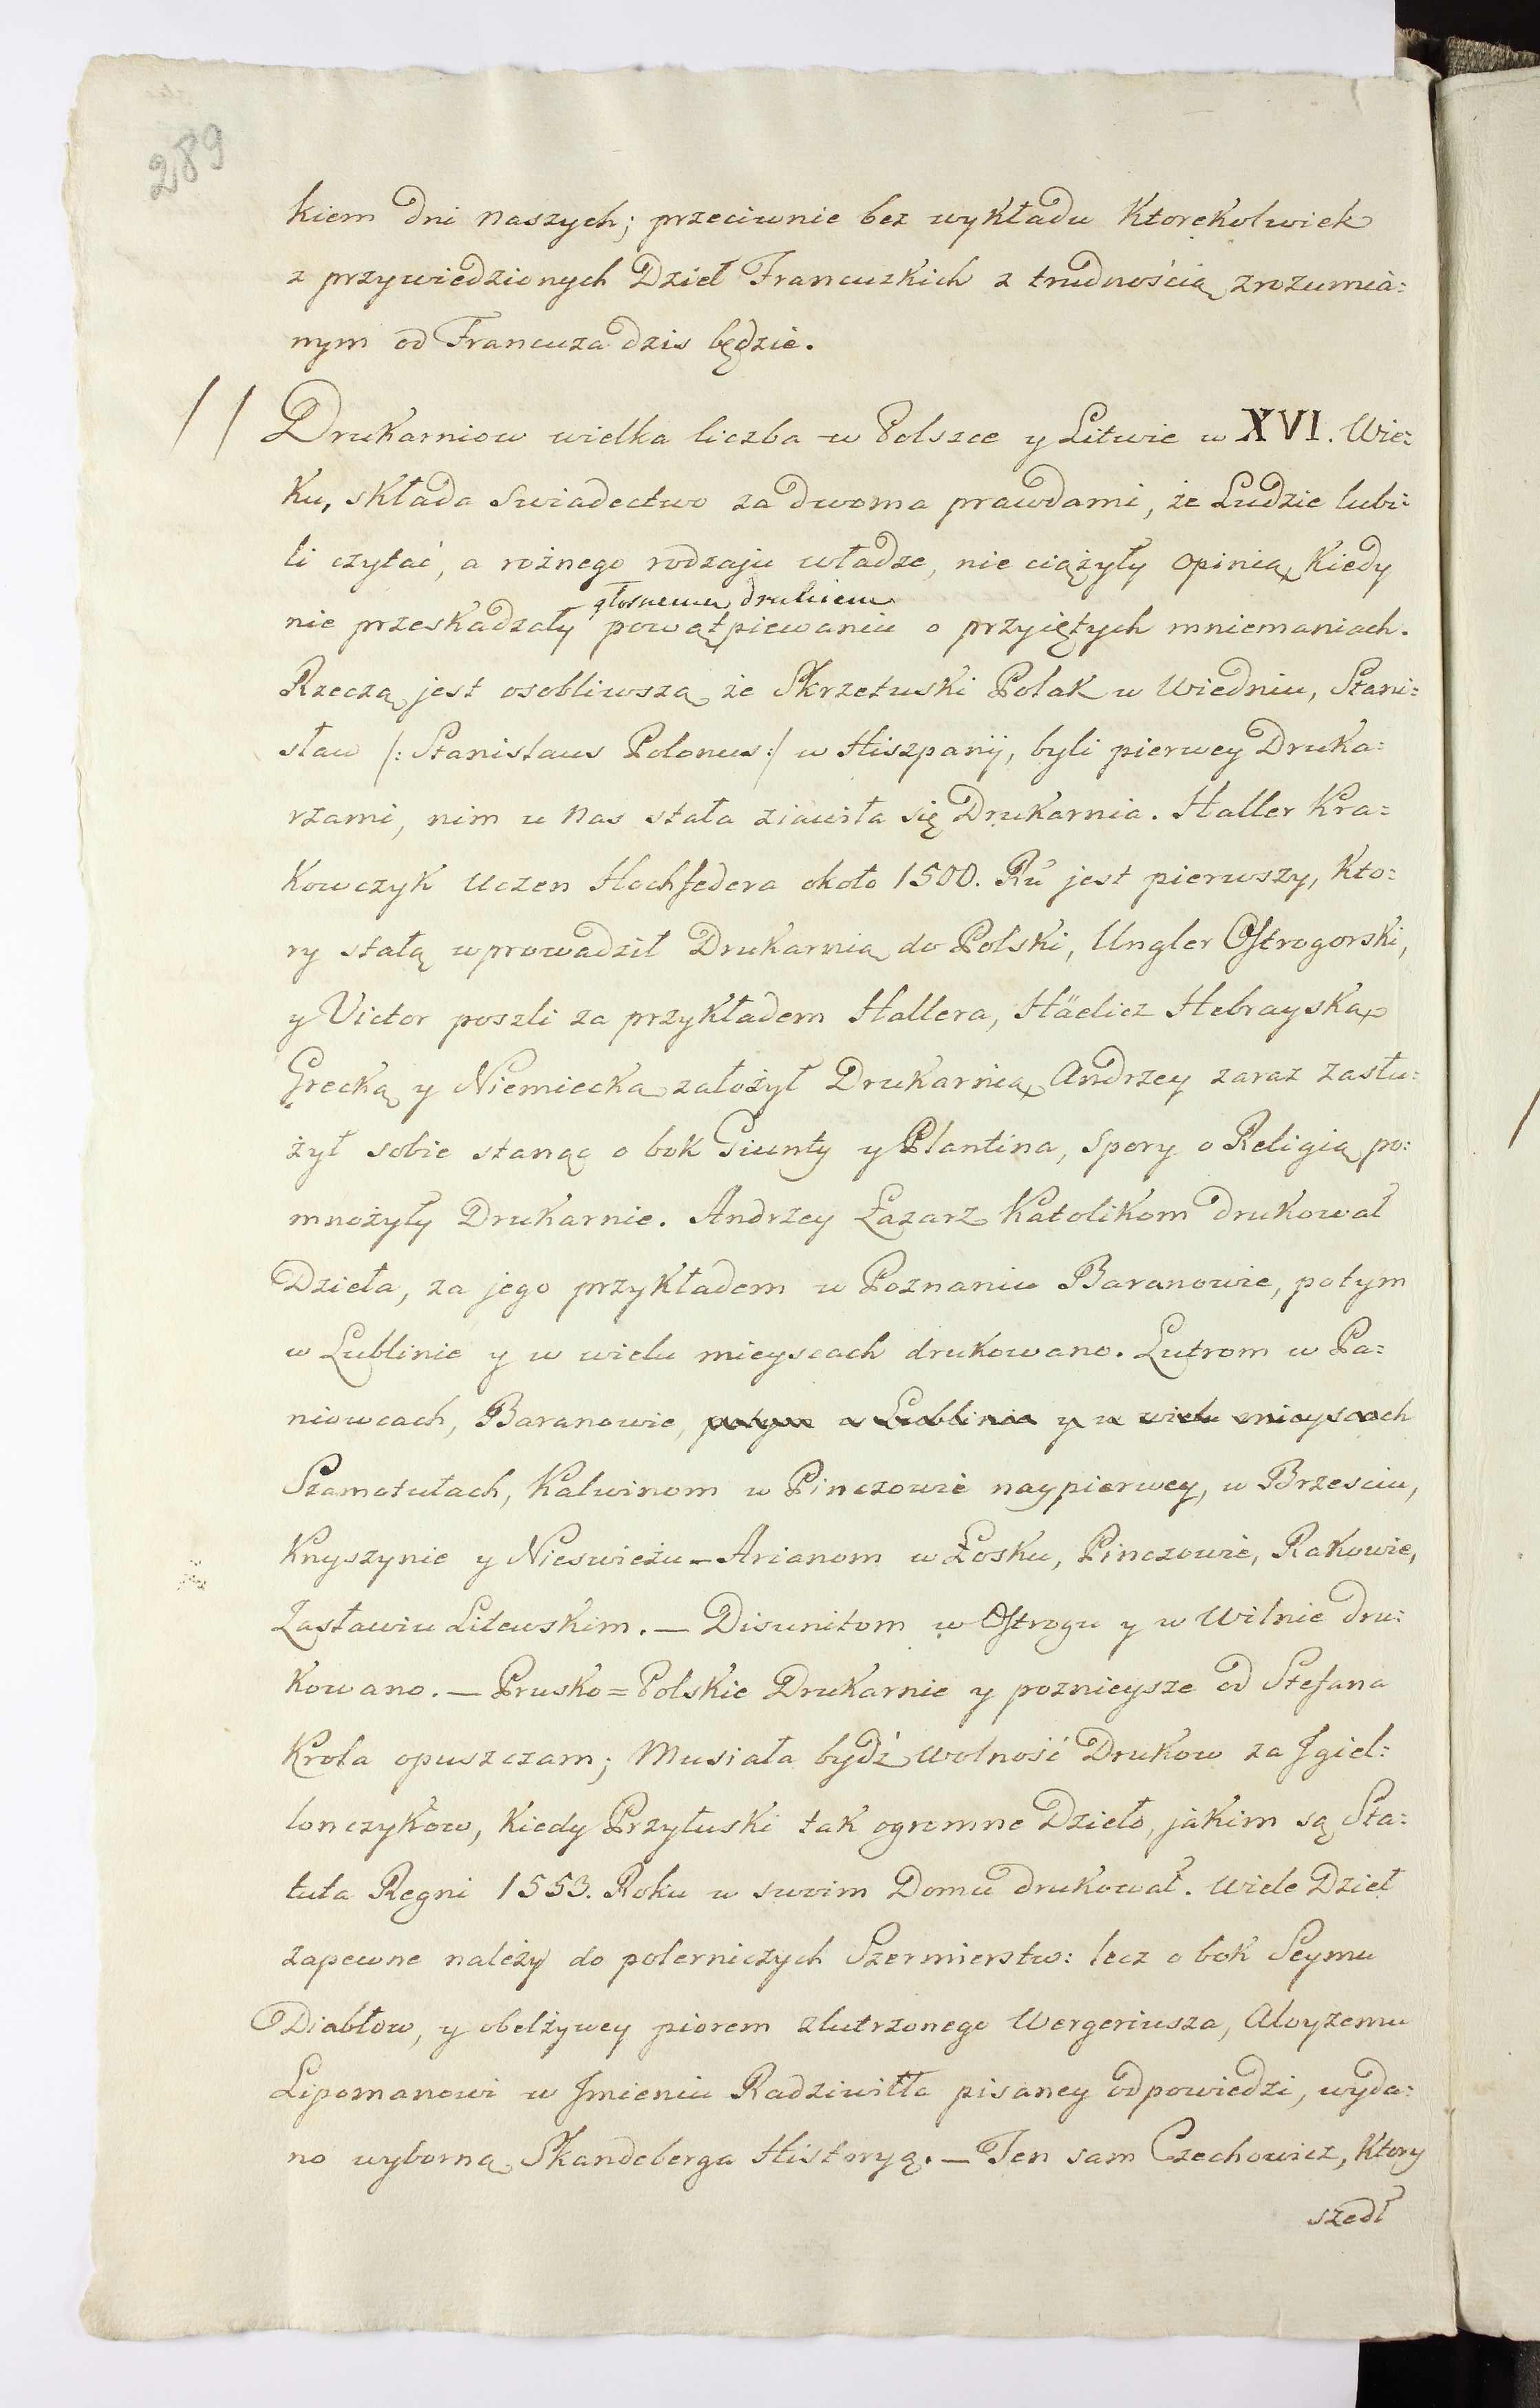 289
kiem dni naszych; przeciwnie bez wykładu Ktorekolwiek
z przywiedzionych Dzieł Francuzkich z trudnością zrozumia:
nym od Francuza dzis będzie.
// Drukarniow wielka liczba w Polszce y Litwie w XVI. Wie:
ku, składa swiadectwo za dwoma prawdami, że Ludzie lubi:
li czytać, a rożnego rodzaju władze, nie ciążyły opinią, Kiedy
głosnemu drukiem
nie przeskadzały powątpiewaniu o przyiętych mniemaniach.
Rzeczą jest osobliwszą że Skrzetuski Polak w Wiedniu, Stani:
sław /: Stanislaus Polonus :/ w Hiszpanij, byli pierwey Druka:
rzami, nim u nas stała ziawiła się Drukarnia. Haller Kra:
kowczyk Uczen Hochfedera około 1500. Ru jest pierwszy, Kto:
ry stałą wprowadził Drukarnią do Polski, Ungler Ostrogorski,
y Victor poszli za przykładem Hallera, Häelicz Hebrayską
Grecką y Niemiecką założył Drukarnią, Andrzey zaraz zasłu:
żył sobie stanąć o bok Giunty y Plantina, Spory o Religią po:
mnożyły Drukarnie. Andrzey Łazarz Katolikom drukował
Dzieła, za jego przykładem w Poznaniu Baranowie, potym
w Lublinie y w wielu mieyscach drukowano. Lutrom w Pa:
niowcach, Baranowie, potym w Lublinie y w wielu mieyscach
Szamotułach, Kalwinom w Pinczowie naypierwey, w Brzesciu,
Knyszynie y Nieswieżu – Arianom w Łosku, Pinczowie, Rakowie,
Zasławiu Litewskim. – Disunitom w Ostrogu y w Wilnie dru:
kowano. – Prusko=Polskie Drukarnie y poznieysze od Stefana
Krola opuszczam; Musiała bydź wolność Drukow za Jgiel:
lonczykow, Kiedy Przyłuski tak ogromne Dzieło, jakim są Sta:
tuta Regni 1553. Roku w swoim Domu drukował. Wiele Dzieł
zapewne należy do polerniczych Szermierstw: lecz o bok Seymu
Diabłow, y obelżywey piorem zlutrzonego Wergeriusza, Aloyzemu
Lipomanowi w Jmieniu Radziwiłła pisaney odpowiedzi, wyda:
no wyborną Skandeberga Historyą. – Ten sam Czechowicz, Ktory
szedł